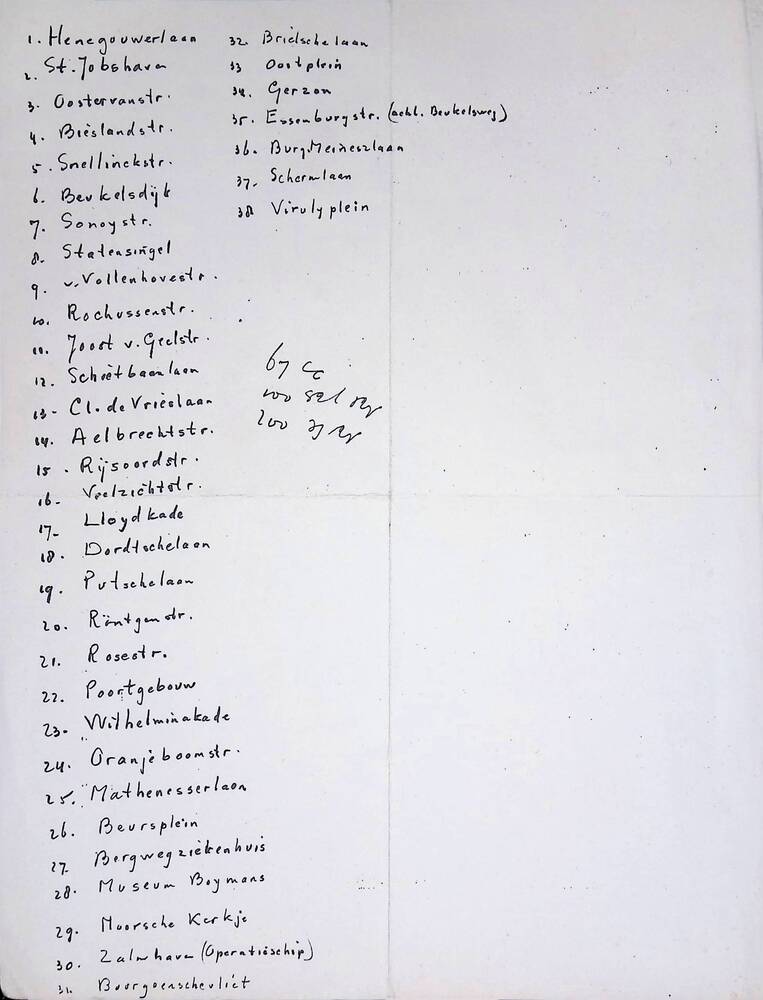 1. Henegouwerlaan
2. St. Jobshaven
3. Oostervanstr.
4. Biëslandstr.
5. Snellinckstr.
6. Beukelsdijk
7. Sonoystr.
8. Statensingel
9. v. Vollenhovestr.
10. Rochussenstr.
11. Joost v. Geelstr.
12. Schietbaanlaan
13- Cl. de Vrieslaan
14. Aelbrechtstr.
15. Rijsoordstr.
16- Veelzichtstr.
17- Lloydkade
18. Dordtschelaan
19. Putschelaan
20. Röntgenstr.
21. Rosestr.
22. Poortgebouw
23- Wilhelminakade
24. Oranjeboomstr.
25. Mathenesserlaan
26. Beursplein
27. Bergwegziekenhuis
28. Museum Boymans
29. Noorsche Kerkje
30. Zalmhaven (Operatieschip)
31. Boergoenschevliet
32. Brielschelaan
33 Oostplein
34. Gerzon
35. Essenburgstr. (acht. Beukelsweg)
36. Burg. Meineszlaan
37. Schermlaan
38 Virulyplein
67
100
200